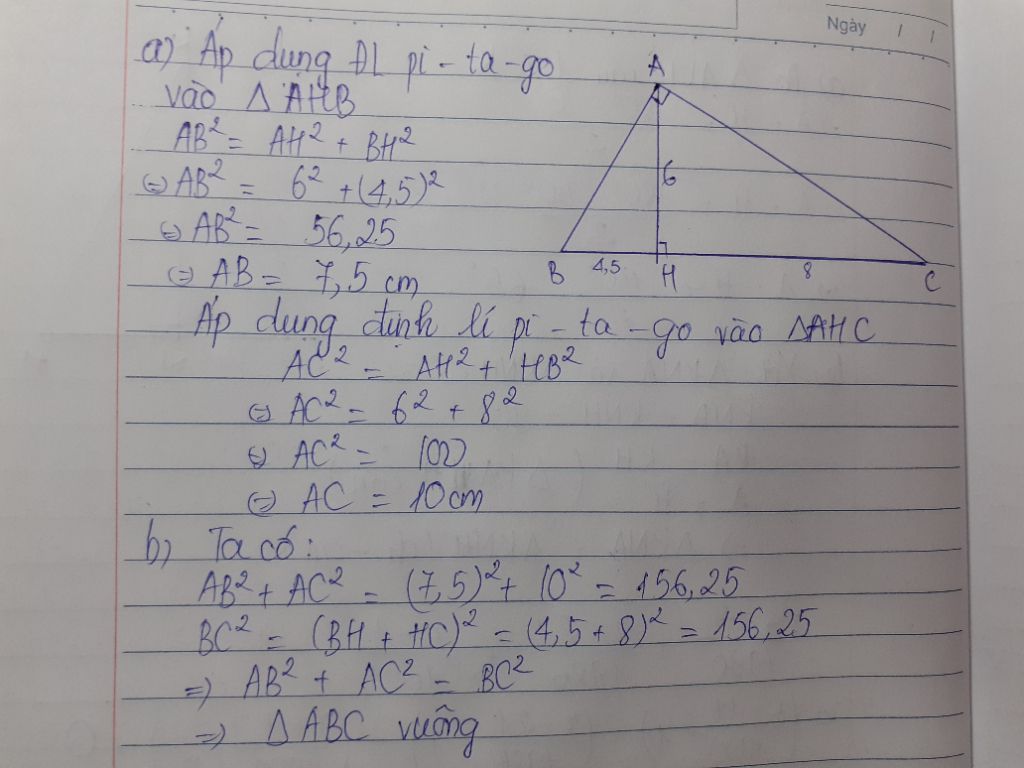 Ngày / /
a) Áp dụng ĐL pi-ta-go
vào Δ AHB
AB² = AH² + BH²
⇔ AB² = 6² + (4,5)²
⇔ AB² = 56,25
⇔ AB = 7,5 cm
A
6
B 4,5 H 8 C
Áp dụng định lí pi-ta-go vào ΔAHC
AC² = AH² + HB²
⇔ AC² = 6² + 8²
⇔ AC² = 100
⇔ AC = 10cm
b) Ta có:
AB² + AC² = (7,5)² + 10² = 156,25
BC² = (BH + HC)² = (4,5 + 8)² = 156,25
=) AB² + AC² = BC²
=) Δ ABC vuông